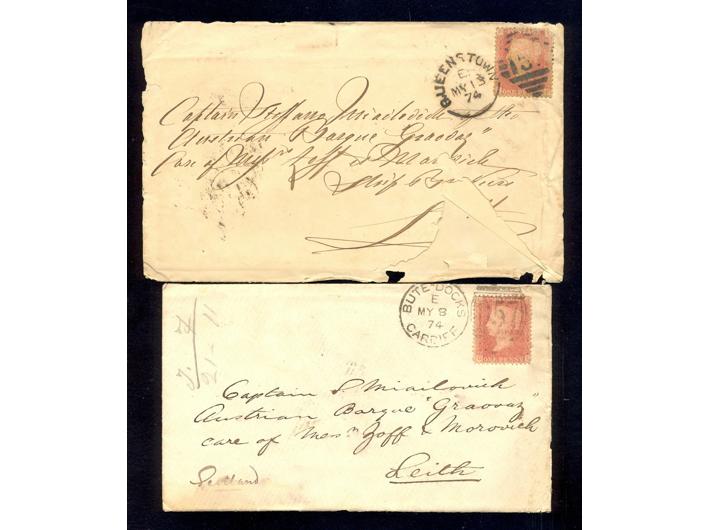 QUEENSTOWN
E
MY 13
74
15
Captain Miailovich
Austrian Barque "Graovaz"
Care of Mess rs & 
Ship Brokers
BUTE-DOCKS
E
MY 8
74
CARDIFF
ONE PENNY
Captain S. Miailovich
Austrian Barque "Graovaz"
care of Mess rs Zoff & Morovich
Leith
Scotland
21-11